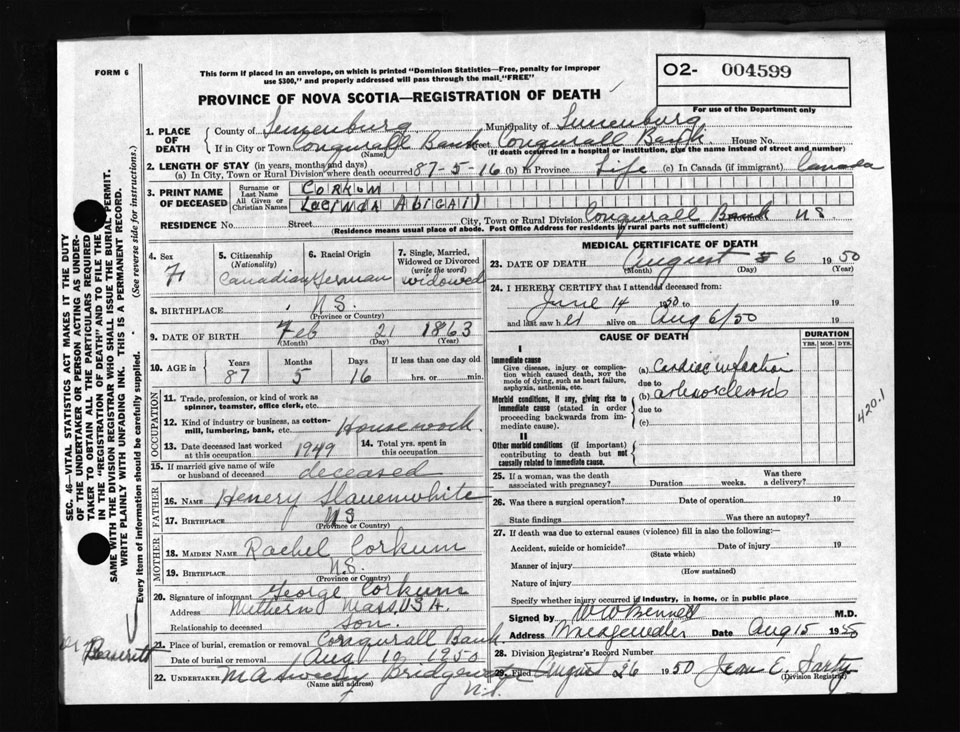 FORM 6
This form if placed in an envelope, on which is printed "Dominion Statistics—Free, penalty for improper
use $300," and properly addressed will pass through the mail, "FREE"
O2- 004599
PROVINCE OF NOVA SCOTIA—REGISTRATION OF DEATH
For use of the Department only
1. PLACE OF DEATH
County of Lunenburg Municipality of Lunenburg
If in City or Town Conqurall Bank Street Conqurall Bank House No.
(Name) (If death occurred in a hospital or institution, give the name instead of street and number)
2. LENGTH OF STAY (in years, months and days)
(a) In City, Town or Rural Division where death occurred 87-5-16 (b) In Province Life (c) In Canada (if immigrant) Canada
3. PRINT NAME OF DECEASED
Surname or Last Name CORKUM
All Given or Christian Names LUCINDA ABIGAIL
RESIDENCE No. Street City, Town or Rural Division Conqurall Bank NS
(Residence means usual place of abode. Post Office Address for residents in rural parts not sufficient)
4. Sex F
5. Citizenship (Nationality) Canadian
6. Racial Origin German
7. Single, Married, Widowed or Divorced (write the word) widowed
8. BIRTHPLACE N.S.
(Province or Country)
9. DATE OF BIRTH Feb 21 1863
(Month) (Day) (Year)
10. AGE in Years Months Days If less than one day old
87 5 16 hrs. or min.
OCCUPATION
11. Trade, profession, or kind of work as spinner, teamster, office clerk, etc.
12. Kind of industry or business, as cotton-mill, lumbering, bank, etc. Housework
13. Date deceased last worked at this occupation 1949
14. Total yrs. spent in this occupation
15. If married give name of wife or husband of deceased deceased
FATHER
16. NAME Henery Slauenwhite
17. BIRTHPLACE NS
(Province or Country)
MOTHER
18. MAIDEN NAME Rachel Corkum
19. BIRTHPLACE N.S.
(Province or Country)
20. Signature of informant George Corkum
Address Methern Mass, USA.
Relationship to deceased son.
21. Place of burial, cremation or removal Conqurall Bank
Date of burial or removal Aug 10 1950
22. UNDERTAKER Bridgewater
(Name and address) N.S.
MEDICAL CERTIFICATE OF DEATH
23. DATE OF DEATH August 6 1950
(Month) (Day) (Year)
24. I HEREBY CERTIFY that I attended deceased from:
June 14 1950 to 19
and last saw her alive on Aug 6/50 19
CAUSE OF DEATH
DURATION
YRS. MOS. DYS.
I
Immediate cause
Give disease, injury or complication which caused death, NOT the mode of dying, such as heart failure, asphyxia, asthenia, etc.
(a) Cardiac
due to
Morbid conditions, if any, giving rise to immediate cause (stated in order proceeding backwards from immediate cause).
(b) arteriosclerosis
due to
(c)
II
Other morbid conditions (if important) contributing to death but not causally related to immediate cause.
420.1
25. If a woman, was the death associated with pregnancy? Duration weeks. Was there a delivery?
26. Was there a surgical operation? Date of operation 19
State findings Was there an autopsy?
27. If death was due to external causes (violence) fill in also the following:
Accident, suicide or homicide? Date of injury 19
(State which)
Manner of injury
(How sustained)
Nature of injury
Specify whether injury occurred in industry, in home, or in public place
Signed by W W Bennett M.D.
Address Bridgewater Date Aug 15 1950
28. Division Registrar's Record Number
29. Filed August 26 1950 Jean E. Sarty
(Division Registrar)
SEC. 46—VITAL STATISTICS ACT MAKES IT THE DUTY
OF THE UNDERTAKER OR PERSON ACTING AS UNDER-
TAKER TO OBTAIN ALL THE PARTICULARS REQUIRED
IN THE "REGISTRATION OF DEATH" AND TO FILE THE
SAME WITH THE DIVISION REGISTRAR WHO SHALL ISSUE THE BURIAL PERMIT.
WRITE PLAINLY WITH UNFADING INK. THIS IS A PERMANENT RECORD.
Every item of information should be carefully supplied. (See reverse side for instructions.)